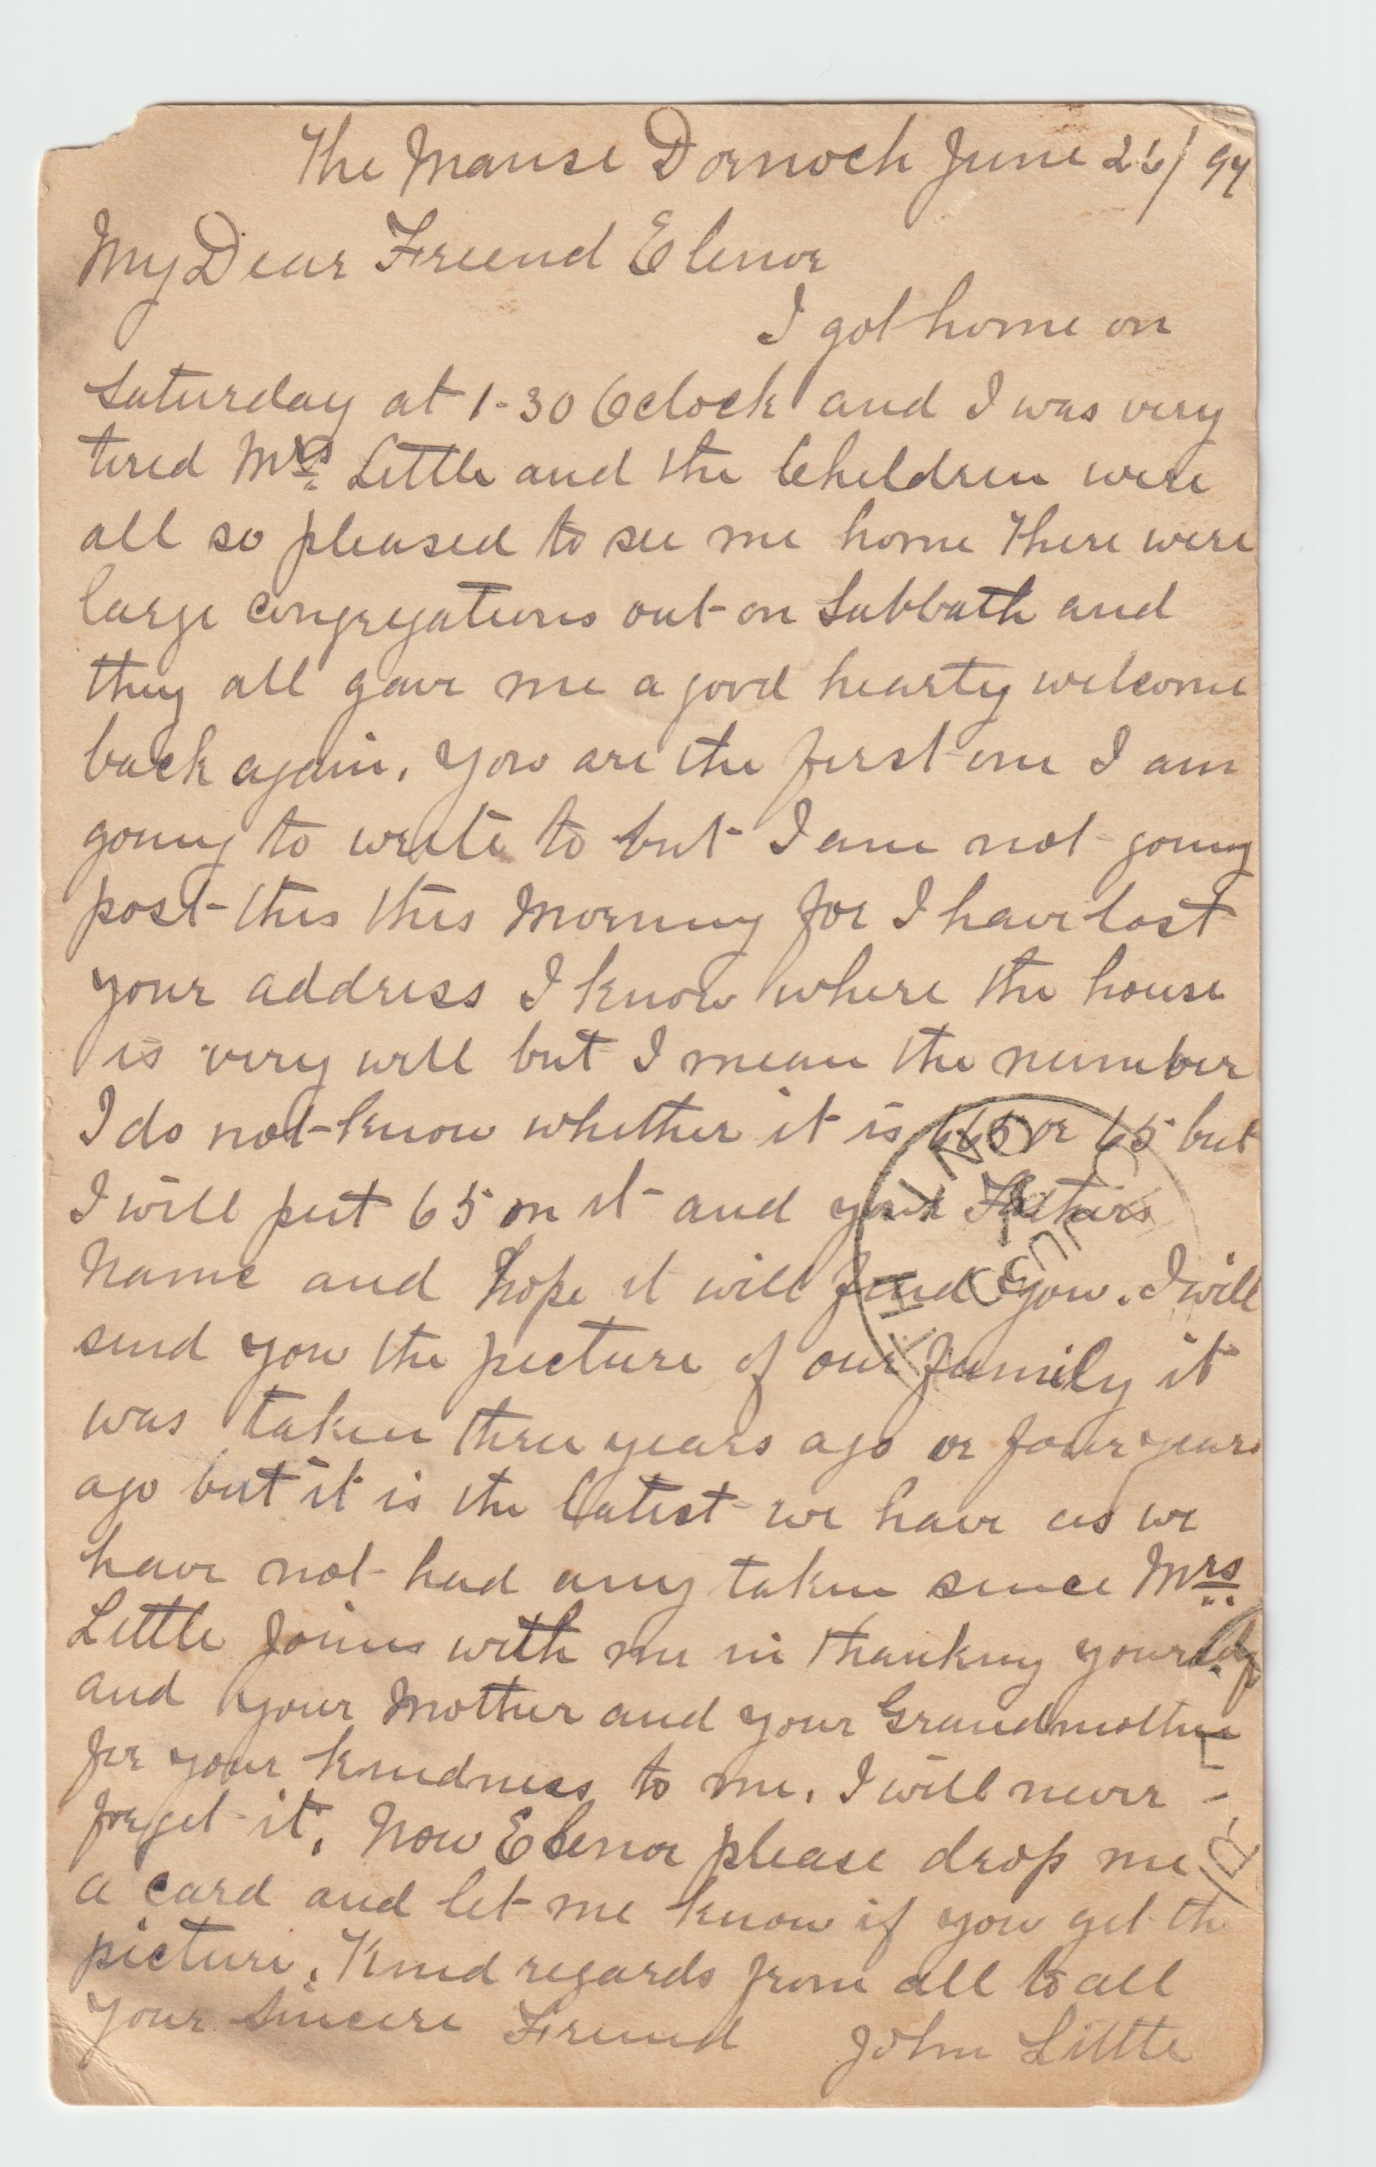 The Manse Dornoch June 26/94
My Dear Freend Elenor
I got home on
Saturday at 1-30 Oclock and I was very
tired Mrs. Little and the Children were
all so pleased to see me home There were
large congregations out on Sabbath and
they all gave me a good hearty welcome
back again. You are the first one I am
going to write to but I am not going
post this this Morning for I have lost
your address I know where the house
is very well but I mean the number
I do not know whether it is or 65 but
I will put 65 on it and your Fathers
Name and hope it will find you. I will
send you the picture of our family it
was taken three years ago or four years
ago but it is the latest we have as we
have not had any taken since Mrs
Little Joins with me in thanking yourself
and your Mother and your Grandmother
for your kindness to me. I will never
forget it. Now Elenor please drop me
a card and let me know if you get the
picture. Kind regards from all to all
Your Sincere Freund John Little